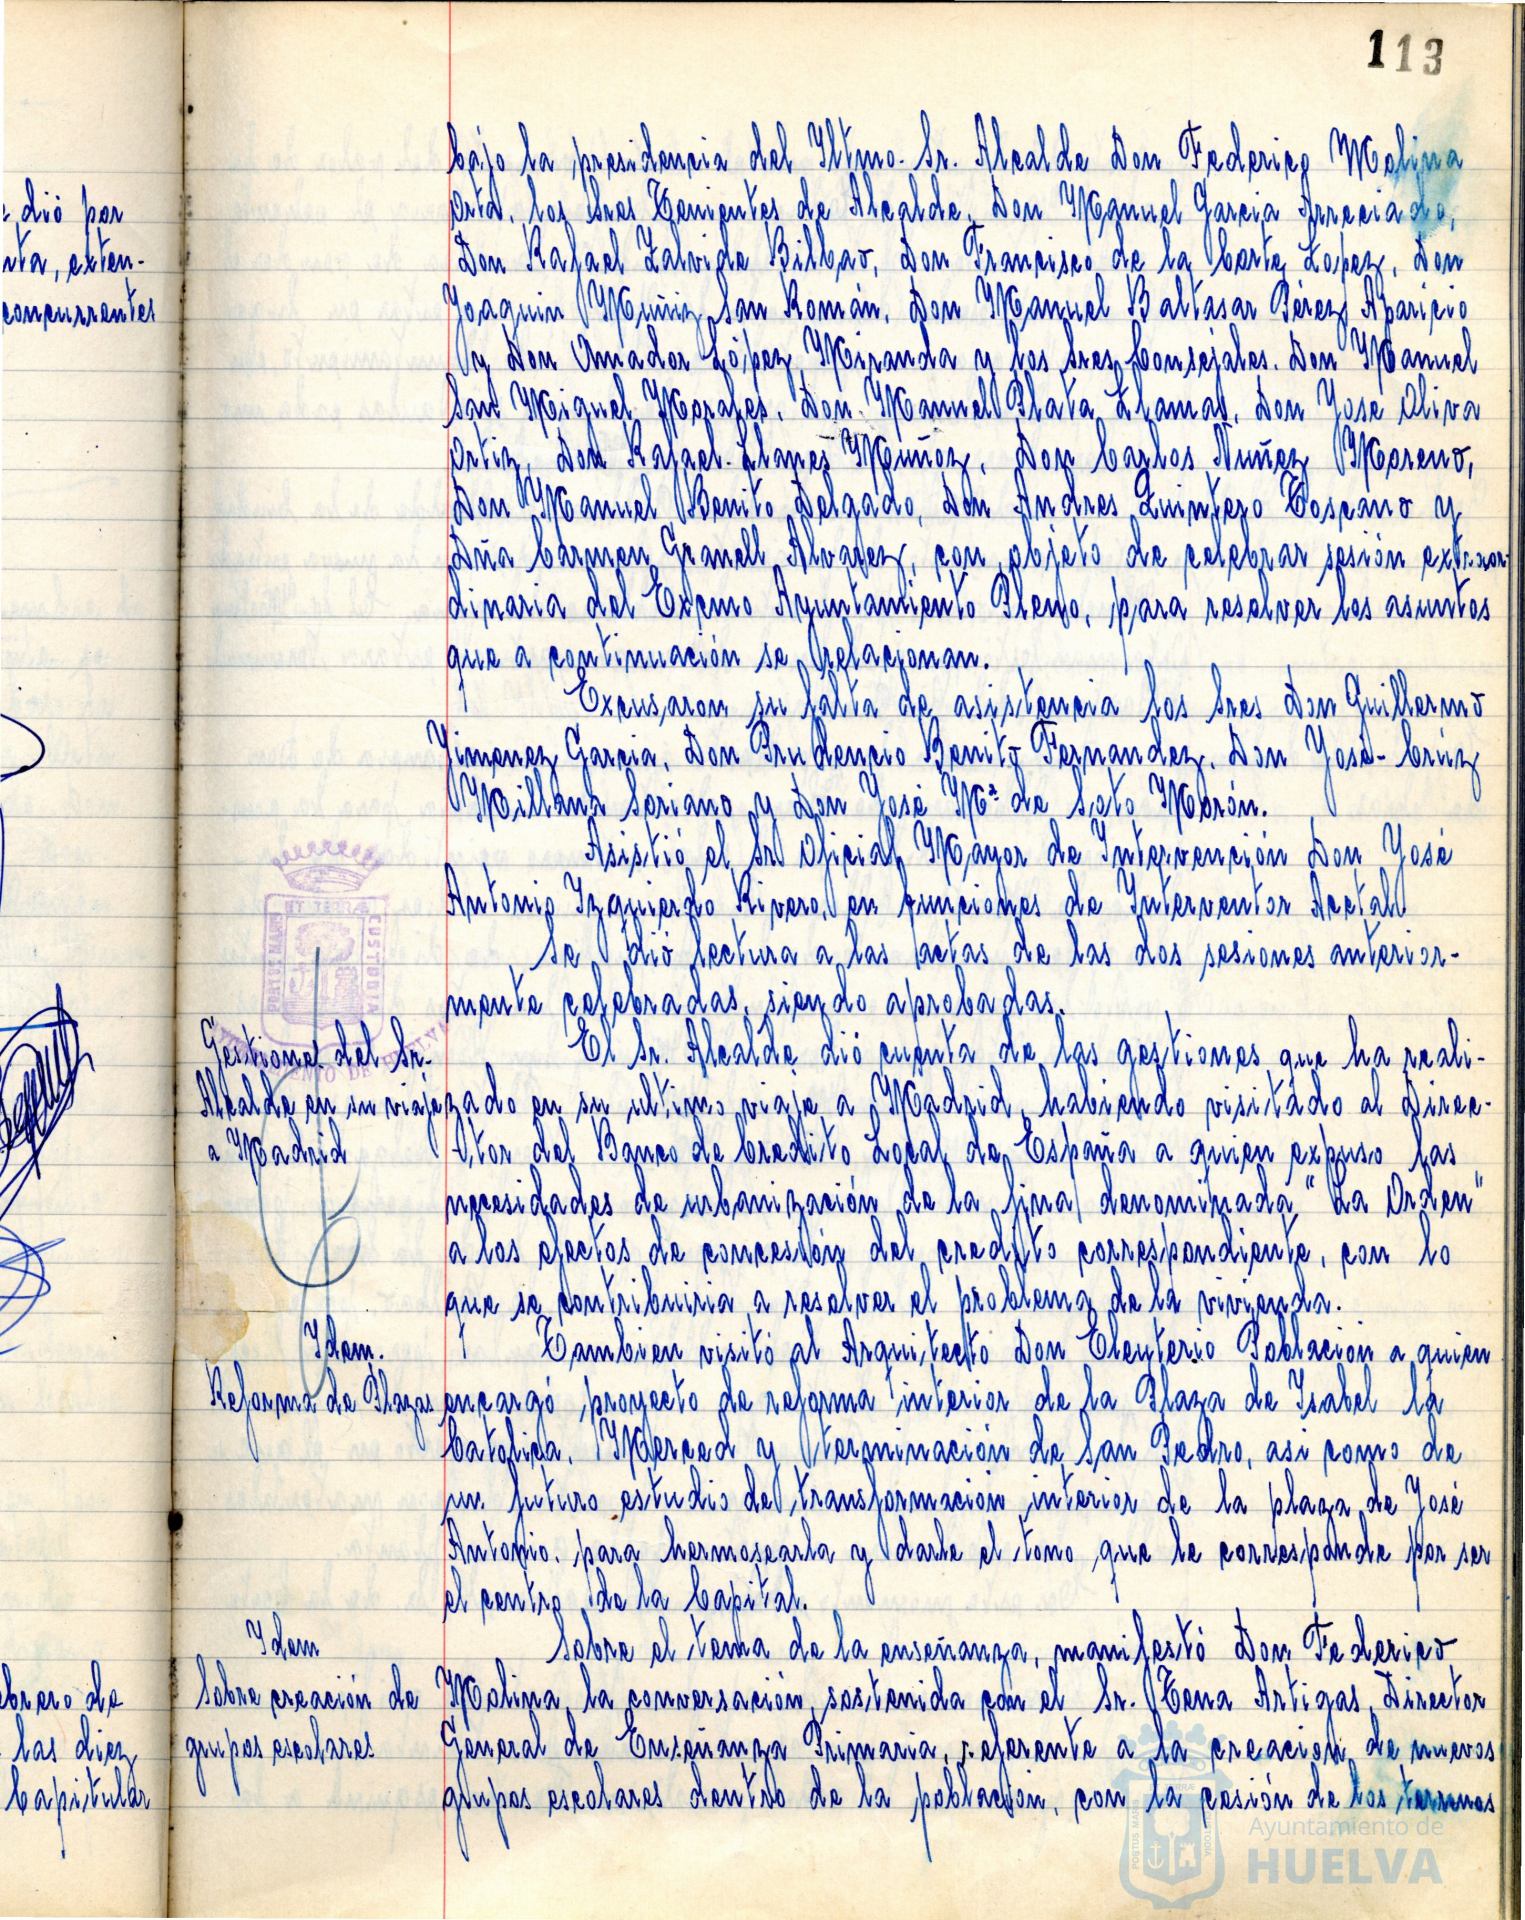 113
bajo la presidencia del Yltmo. Sr. Alcalde Don Federico Molina
Orta, los Sres Tenientes de Alcalde, Don Manuel Garcia Arreciado,
Don Rafael Zalvide Bilbao, Don Francisco de la Corte Lopez, Don
Joaquin Muñiz San Román, Don Manuel Baltasar Pérez Aparicio
y Don Amador López Miranda y los Sres Concejales. Don Manuel
San Miguel Morales, Don Manuel Plata Llamas, Don José Oliva
Ortiz, Don Rafael Llanes Muñoz, Don Carlos Nuñez Moreno,
Don Manuel Benito Delgado, Don Andres Quintero Toscano y
Dña Carmen Granell Alvarez, con objeto de celebrar sesión extraor-
dinaria del Excmo Ayuntamiento Pleno, para resolver los asuntos
que a continuación se relacionan.
Excusaron su falta de asistencia los Sres Don Guillermo
Jimenez Garcia, Don Prudencio Benito Fernandez, Don José-Crúz
Millana Soriano y Don José Mª de Soto Morón.
Asistió el Sr Oficial Mayor de Intervención Don José
Antonio Izquierdo Rivero, en funciones de Interventor Acctal
Se dió lectura a las actas de las dos sesiones anterior-
mente celebradas, siendo aprobadas.
Gestiones del Sr.
Alcalde en su viaje
a Madrid
El Sr. Alcalde dió cuenta de las gestiones que ha reali-
zado en su ultimo viaje a Madrid, habiendo visitado al Direc-
tor del Banco de Credito Local de España a quien expuso las
necesidades de urbanización de la finca denominada "La Orden"
a los efectos de concesión del credito correspondiente, con lo
que se contribuiria a resolver el problema de la vivienda.
Idem.
Reforma de Plazas
Tambien visitó al Arquitecto Don Eleuterio Población a quien
encargó proyecto de reforma interior de la Plaza de Isabel la
Catolica, Merced y terminación de San Pedro, asi como de
un futuro estudio de transformación interior de la plaza de José
Antonio, para hermosearla y darle el tono que le corresponde por ser
el centro de la Capital.
Idem
Sobre creación de
grupos escolares
Sobre el tema de la enseñanza, manifestó Don Federico
Molina la conversación sostenida con el Sr. Tena Artigas, Director
General de Enseñanza Primaria, referente a la creación de nuevos
grupos escolares dentro de la población, con la cesión de los terrenos
dió por
exten-
concurrentes
ebrero de
las diez
Capitular
PORTUS MARIS
ET TERRÆ
CUSTODIA
HUELVA
Ayuntamiento de
HUELVA